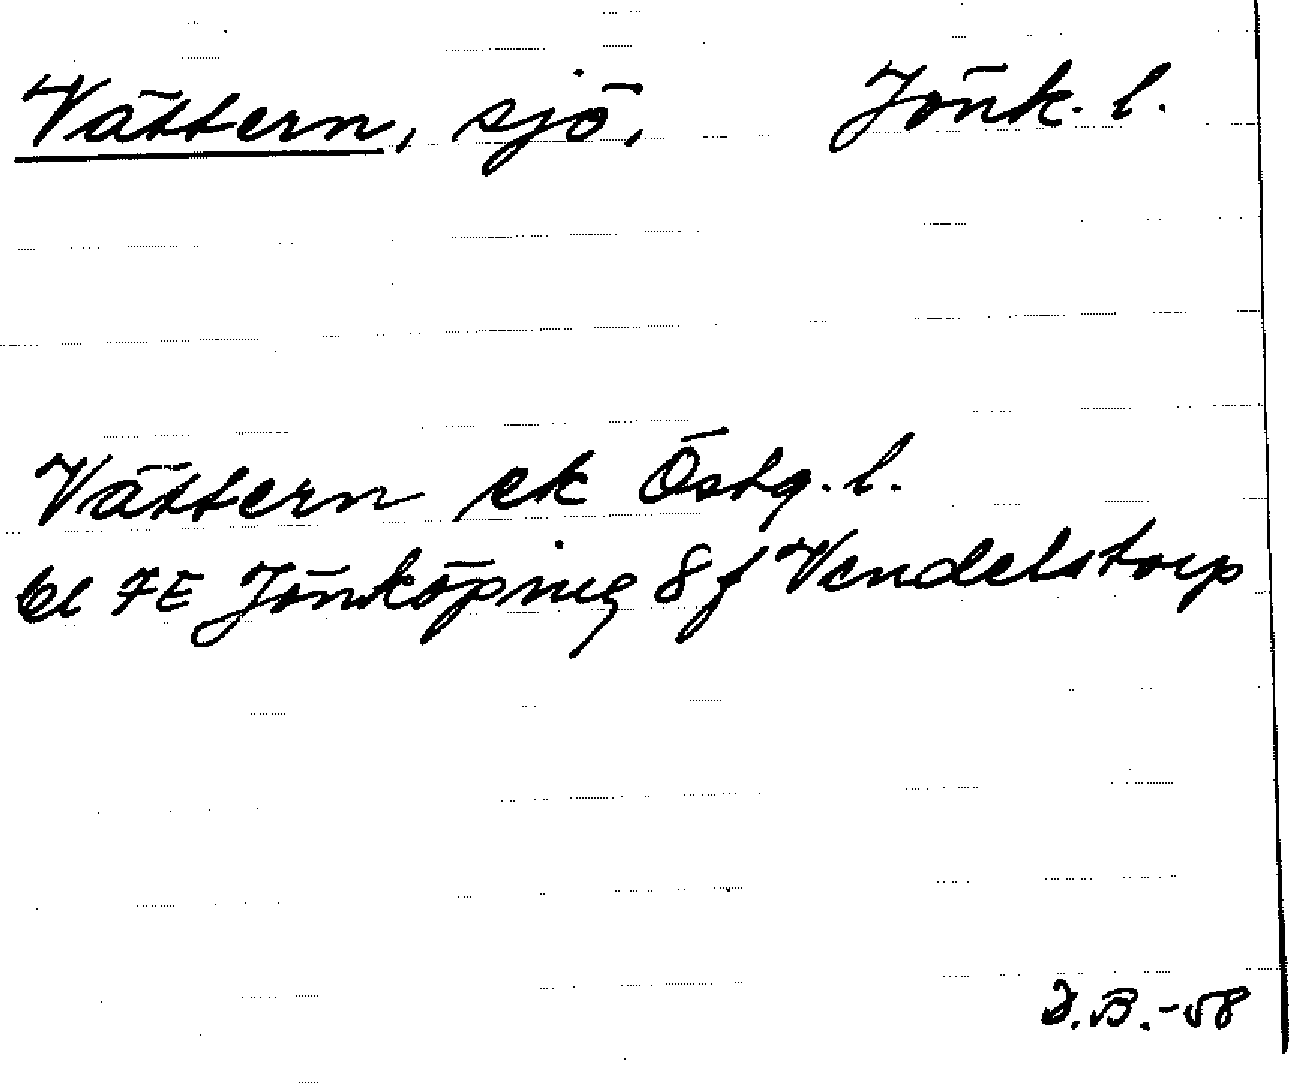 Vättern, sjö, Jönk. l.
Vättern ek Östg. l.
bl FE Jönköping 8 f Vendelstorp
J.B.-58